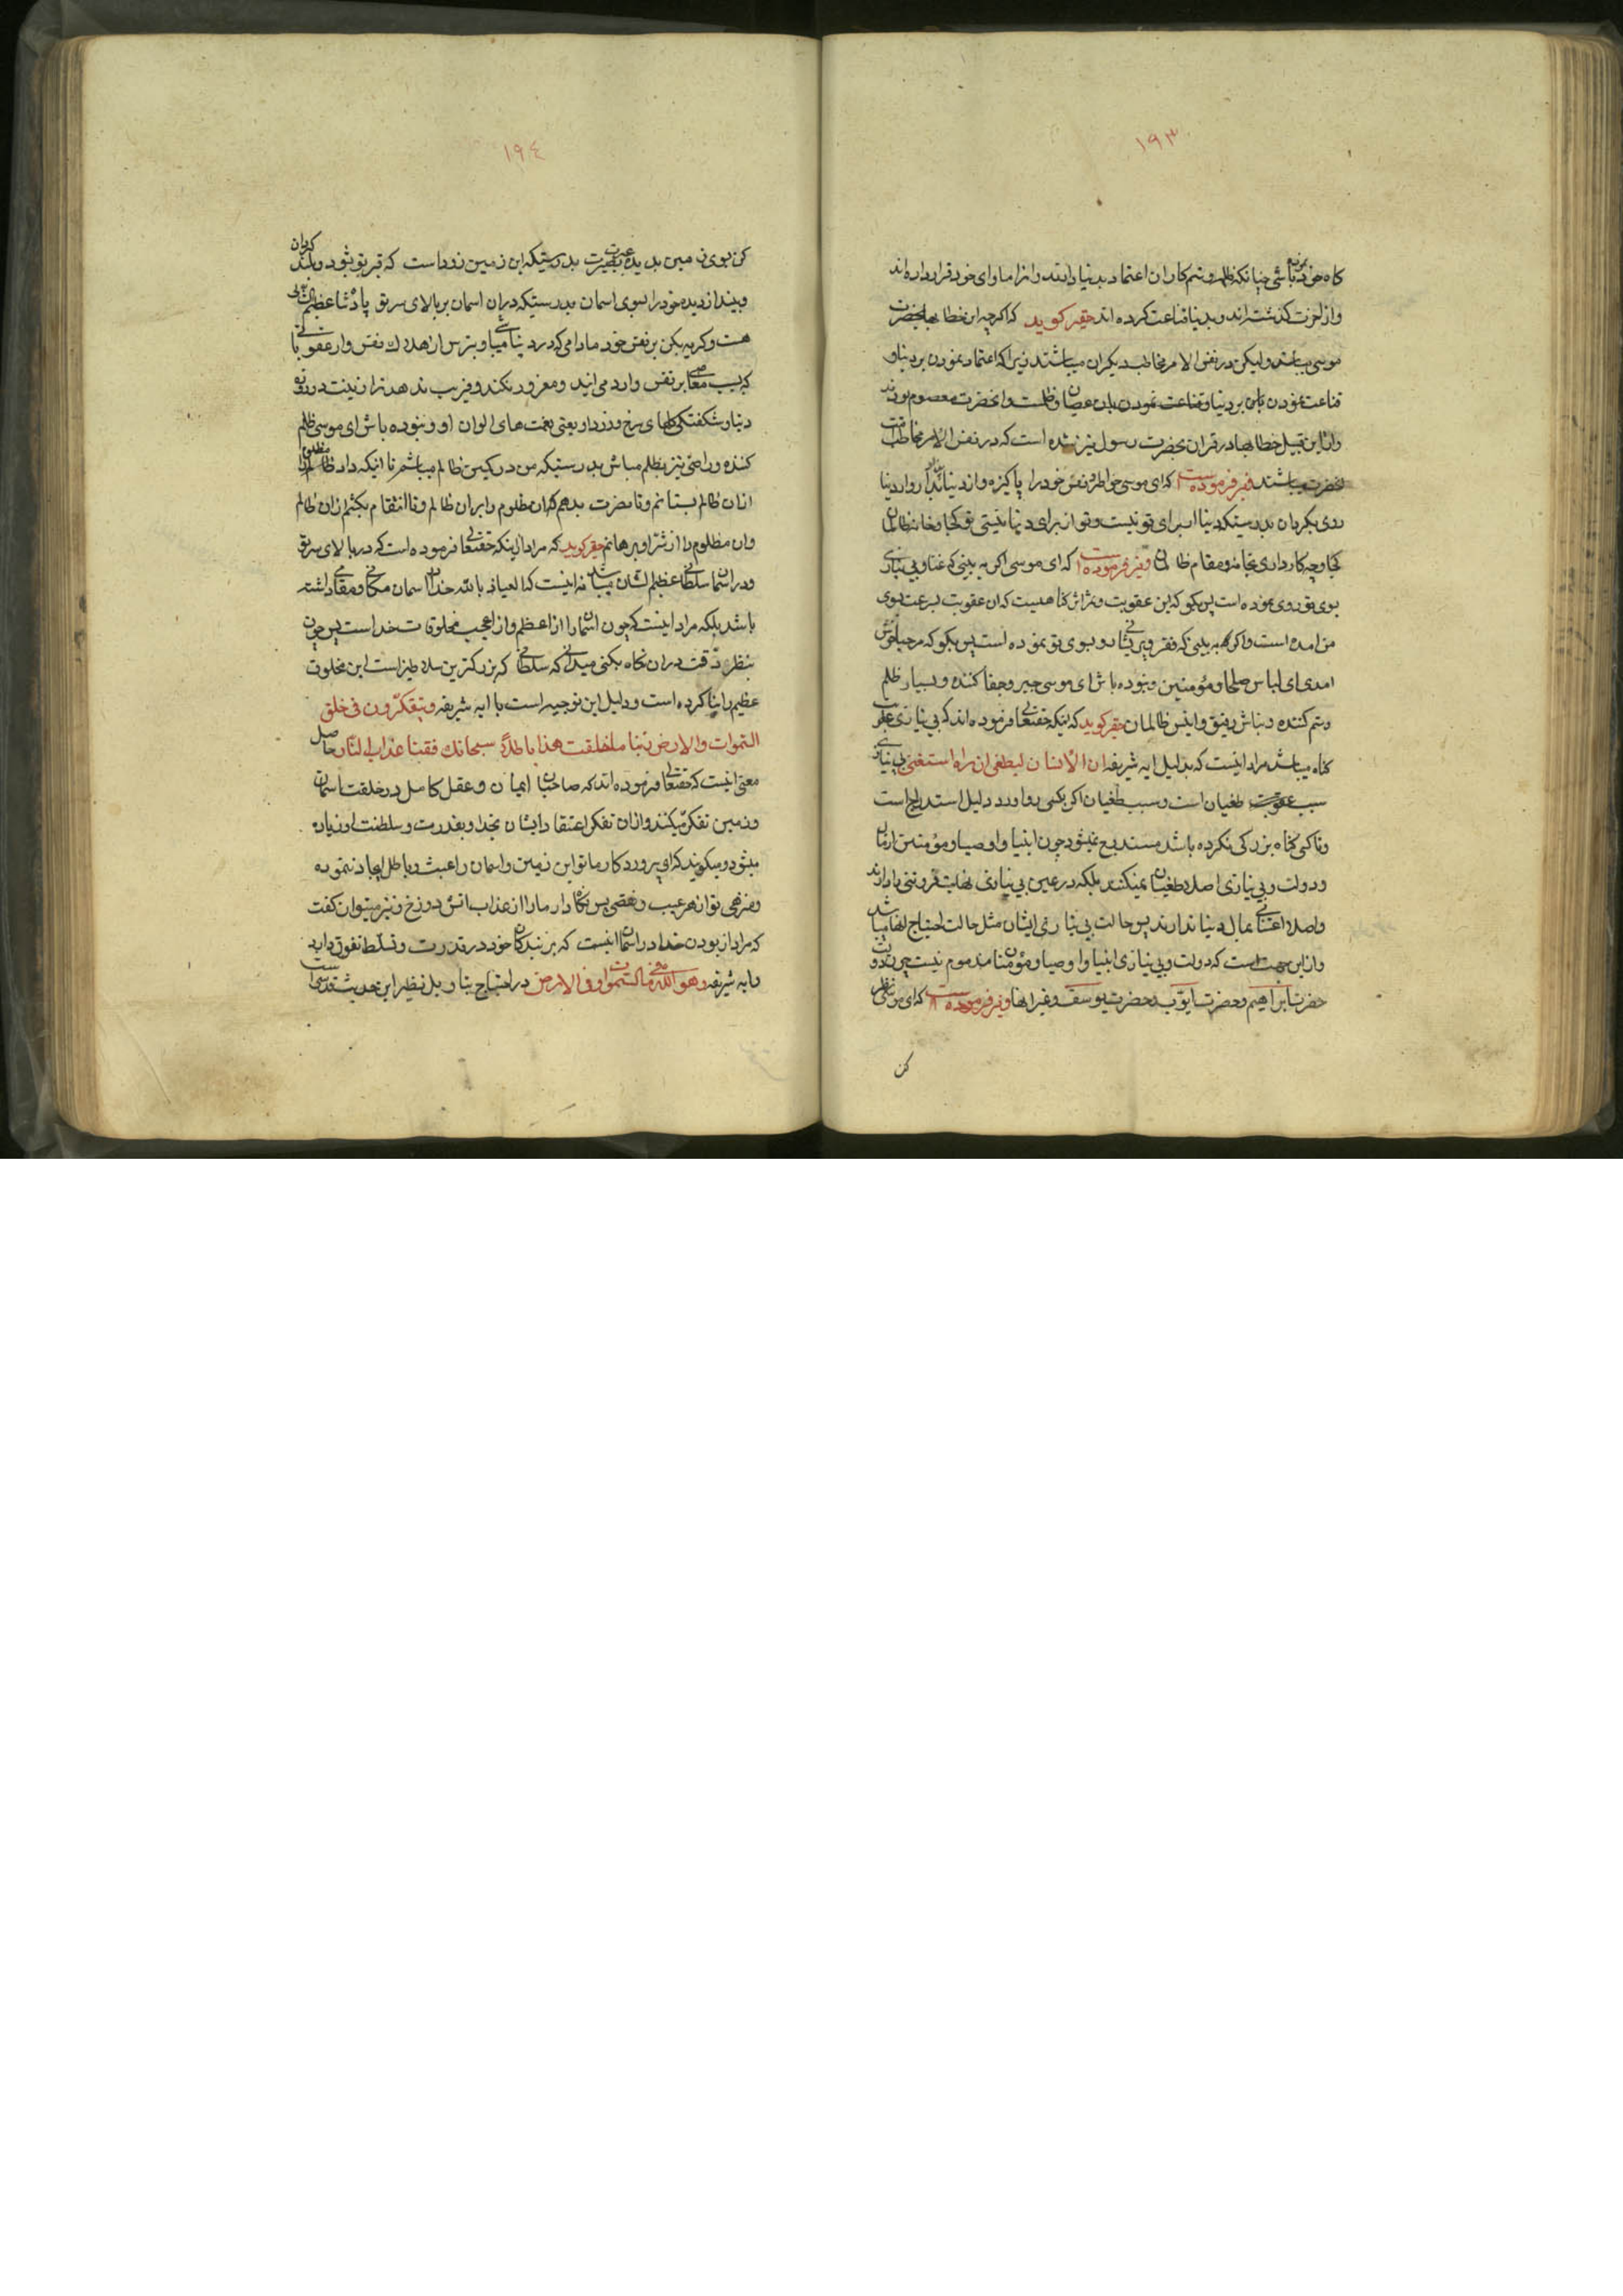 ۱۹۳
کاه خود باشی چنانکه ظلمه و ستم کاران اعتماد بدنیا دارند و انرا ماوای خود قرار داده اند
و از اخرت کذشته اند و بدنیا قناعت کرده اند حقیر کوید که اکرچه این خطابها بحضرت
موسی میباشد ولیکن در نفس الامر مخاطب دیکران میباشند زیرا که اعتماد نمودن بر دنیا و
قناعت نمودن بان عصیان و ظلمست و انحضرت معصوم بودند
و از این قبیل خطابها در قران بحضرت رسول نیز شده است که در نفس الامر مخاطب
میباشند و نیز فرموده است که ای موسی خواطر و نفس خود را پاکیزه و از دنیا بدار و از دنیا
روی بکردان بدرستیکه دنیا از برای تو نیست و تو از برای دنیا نیستی تو کجا و خانه ظالمان
کجا و چه کار داری بخانه و مقام ظالمان و نیز فرموده است که ای موسی اکر به بینی که غنا و بی نیازی
بسوی تو روی نموده است پس بکو که این عقوبت و اثر کناهیست که ان عقوبت بسرعت بسوی
من امده است و اکر به بینی که فقر و پریشانی رو بسوی تو نموده است پس بکو که مرحبا خوش
امدی ای لباس صلحا و مؤمنین و نبوده باش ای موسی جبر و جفا کننده و بسیار ظلم
و ستم کننده و مباش رفیق و انیس ظالمان حقیر کوید که اینکه حقتعالی فرموده اند که بی نیازی عقوبت
کناه میباشد مراد اینست که بدلیل ایه شریفه ان الانسان لیطغی ان راه استغنی بی نیازی
سبب طغیان است و سبب طغیان اکر بکسی رو اورد دلیل استدراج است
و تا کسی کناه بزرکی نکرده باشد مستدرج نمیشود چون انبیا و اوصیا و مؤمنین از مال
و دولت و بی نیازی اصلا طغیان نمیکنند بلکه در عین بی نیازی نهایت فروتنی را دارند
و اصلا اعتنائی بمال دنیا ندارند پس حالت بی نیازی ایشان مثل حالت احتیاج انها میباشد
و از این جهت است که دولت و بی نیازی انبیا و اوصیا و مؤمنان مذموم نیست چون دولت
حضرت ابراهیم و حضرت ایوب و حضرت یوسف و غیر انها و نیز فرموده است که ای موسی نظر
کن
۱۹٤
کن بسوی زمین بدیده عبرت بدرستیکه این زمین زود است که قبر تو شود و بلند کردان
و بینداز دیده خود را بسوی اسمان بدرستیکه در ان اسمان بر بالای سر تو پادشاه عظیم الشانی
هست و کریه بکن بر نفس خود مادامی که در دنیا میباشی و بترس از هلاک نفس و از عقوبتها
که بسبب معاصی بر نفس وارد می ایند و مغرور نکند و فریب ندهد ترا زینت و رونق
دنیا و شکفتکی کلهای سرخ و زرد او یعنی نعمت های الوان او و نبوده باش ای موسی ظلم
کننده و راضی نیز بظلم مباش بدرستیکه من در کمین ظالم میباشم تا اینکه داد مظلوم را
از ان ظالم بستانم و تا نصرت بدهم ان مظلوم را بر ان ظالم و تا انتقام بکشم از ان ظالم
و ان مظلوم را از شر او برهانم حقیر کوید که مراد از اینکه حقتعالی فرموده است که در بالای سر تو
و در ان اسمان سلطانی عظیم الشان میباشد نه اینست که العیاذ بالله خدا در اسمان مکانی و مقامی داشته
باشد بلکه مراد اینست که چون اسمان از اعظم و از اعجب مخلوقات خداست پس چون
بنظر دقت در ان نکاه بکنی میدانی که سلطانی که بزرکترین سلاطین است این مخلوق
عظیم را بنا کرده است و دلیل این توجیه است با ایه شریفه و یتفکرون فی خلق
السموات والارض ربنا ما خلقت هذا باطلا سبحانک فقنا عذاب النار حاصل
معنی اینست که حقتعالی فرموده اند که صاحبان ایمان و عقل کامل در خلقت اسمان
و زمین تفکر میکنند و از ان تفکر اعتقاد ایشان بخدا و بقدرت و سلطنت او زیاده
میشود و میکویند که ای پروردکار ما تو این زمین و اسمان را عبث و باطل ایجاد ننموده
و منزهی تو از هر عیب و نقصی پس نکاه دار ما را از عذاب اتش دوزخ و نیز میتوان کفت
که مراد از بودن خدا در اسمان اینست که بر بندکان خود در قدرت و تسلط تفوق دارد
و ایه شریفه و هو الله فی السموات و فی الارض در احتیاج بتاویل نظیر این حدیث قدسی است